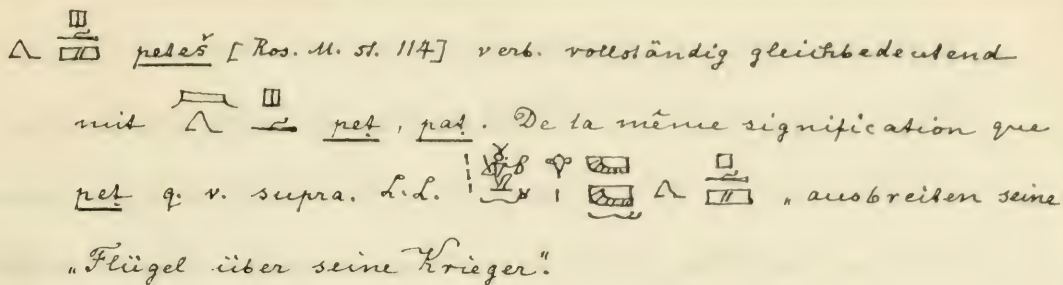 peteš [Ros. M. st. 114] verb. vollständig gleichbedeutend
mit peṭ, paṭ. De la même signification que
peṭ q. v. supra. L.L. „ausbreiten seine
„Flügel über seine Krieger“.